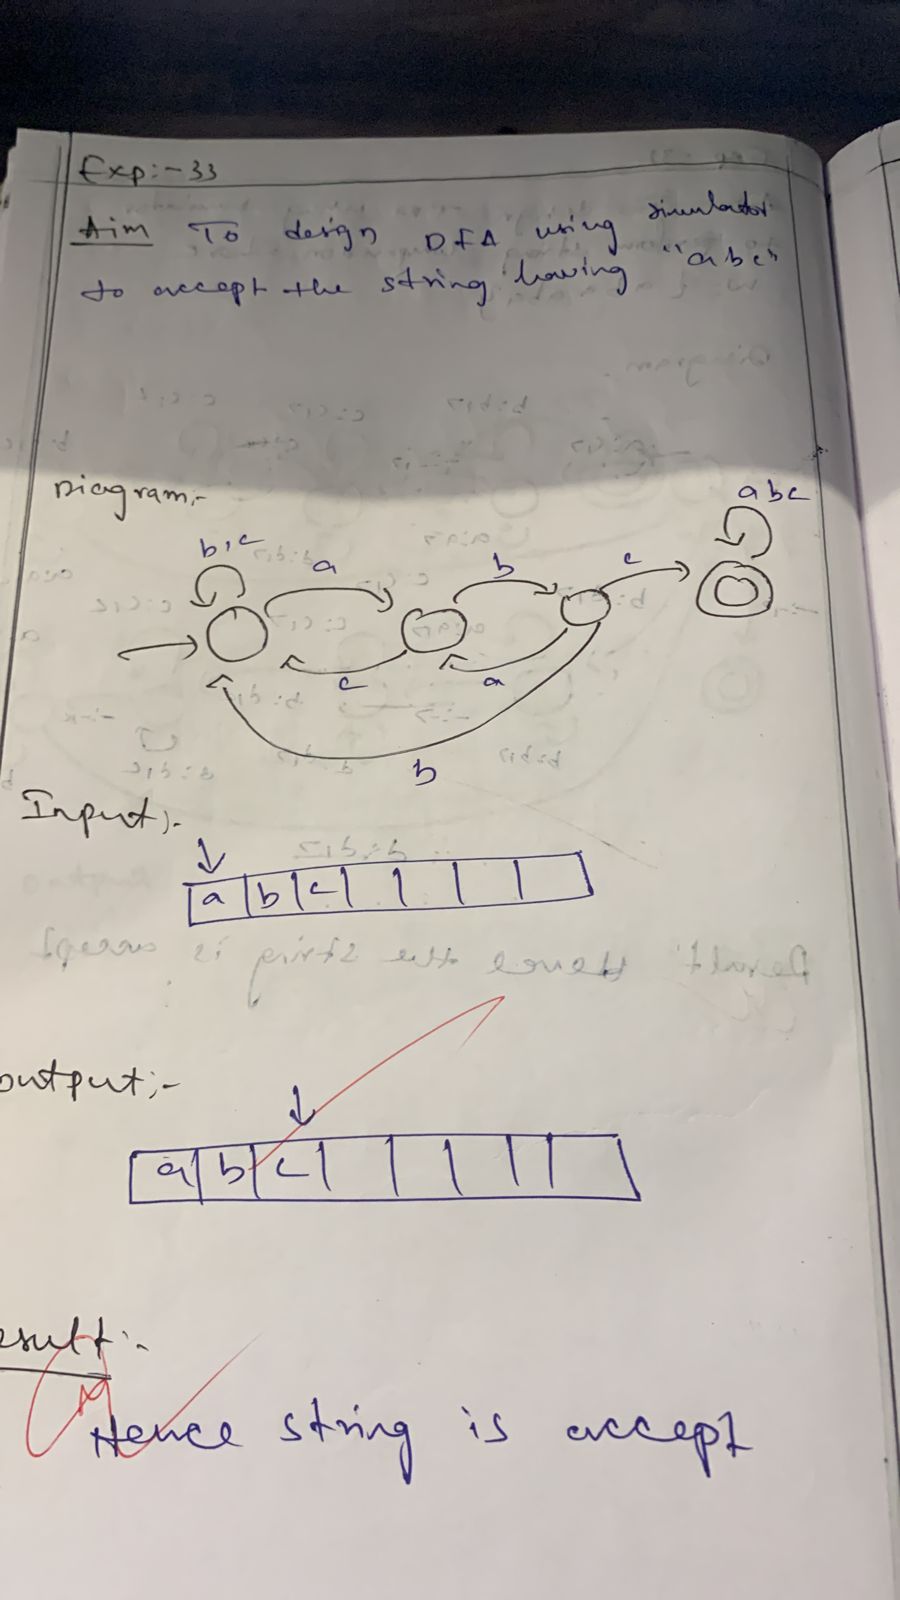 Exp:-33
Aim To design DFA using simulator
to accept the string having "abc"
Diagram:-
abc
b,c
a
b
c
c
a
b
Input:-
a b c
output:-
a b c
esult:-
Hence string is accept